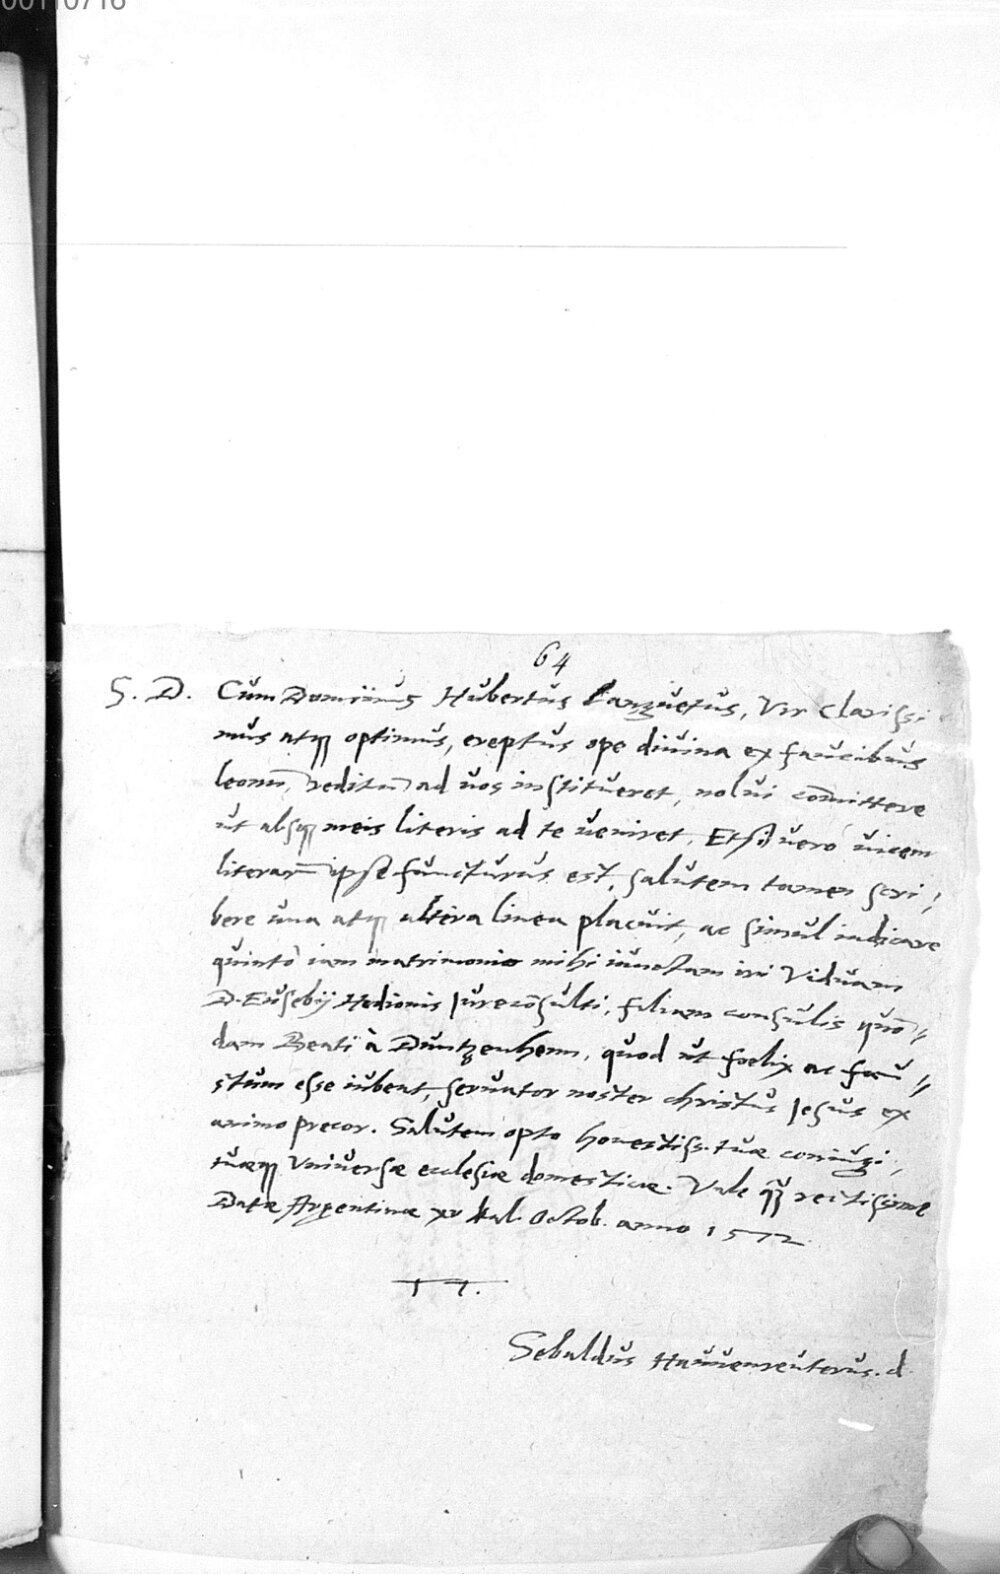 00110716
64
S. D. Cum Dominus Hubertus Languetus, Vir clarissi
mus atq; optimus, ereptus ope divina ex faucibus
leonū, reditū ad vos institueret, nolui com̄ittere
ut absq; meis literis ad te veniret. Etsi vero vicem
literarū ipse functurus est, salutem tamen scri,
bere una atq; altera linea placuit, ac simul indicare
quinto iam matrimonio mihi iunctam iri Viduam
D. Eusebij Hedionis Jurecōsulti, filiam consulis quō,,
dam Beati à Duntzenhem, quod ut foelix ac fau,,
stum esse iubeat, servator noster christus Jesus ex
animo precor. Salutem opto honestiss. tuæ coniugi,
tuæq; Universæ ecclesiæ domesticæ. Vale q̄ rectissime
Datæ Argentinæ xv kal. Octob. anno 1572
17.
Sebaldus Hauuenreuterus. d.